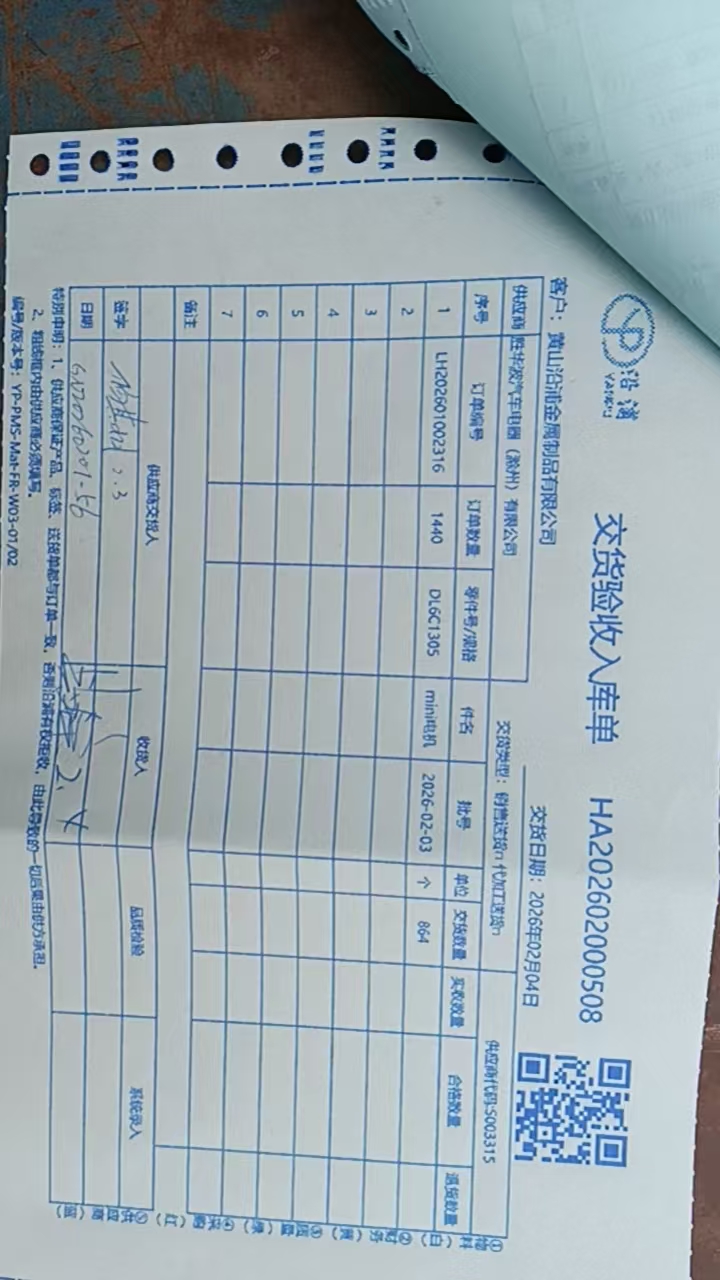 沿浦
YANPU
交货验收入库单 HA202602000508
客户：黄山沿浦金属制品有限公司
交货日期：2026年02月04日
供应商 胜华波汽车电器（滁州）有限公司 交货类型：销售送货n 代加工送货n 供应商代码:S003315
序号 订单编号 订单数量 零件号/规格 件名 批号 单位 交货数量 实收数量 合格数量 退货数量
1 LH202601002316 1440 DL6C1305 mini电机 2026-02-03 个 864
2
3
4
5
6
7
备注
供应商交货人 收货人 品质检验 系统录入
签字 2.3
日期 2.4
特别申明：1、供应商保证产品、标签、送货单都与订单一致，否则沿浦有权拒收，由此导致的一切后果由供方承担。
2、粗线框内由供应商必须填写。
编号/版本号：YP-PMS-Mat-FR-W03-01/02
①物料（白）②财务（黄）③质量（绿）④采购（红）⑤供应商（蓝）